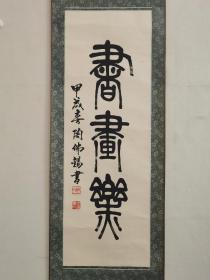 書畫樂
甲戌春陶佛錫書